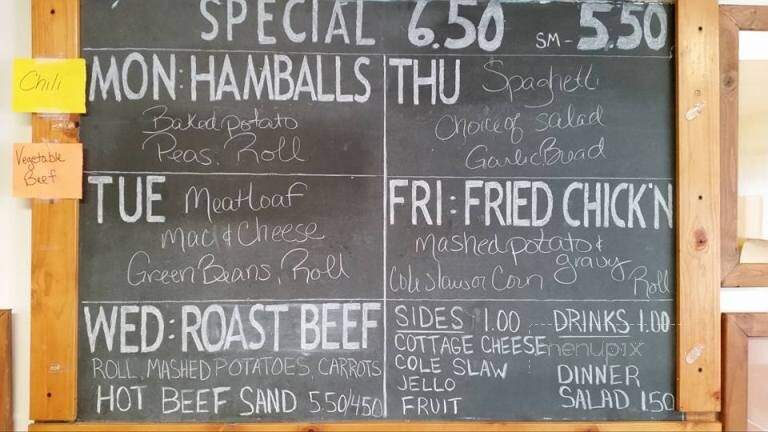 SPECIAL 6.50 SM- 5.50
Chili
Vegetable
Beef
MON: HAMBALLS
Baked potato
Peas, Roll
TUE Meatloaf
Mac & Cheese
Green Beans, Roll
WED: ROAST BEEF
ROLL, MASHED POTATOES, CARROTS
HOT BEEF SAND 5.50/4.50
THU Spaghetti
Choice of salad
Garlic Bread
FRI: FRIED CHICK'N
Mashed potato &
gravy
Cole slaw or Corn Roll
SIDES 1.00
COTTAGE CHEESE
COLE SLAW
JELLO
FRUIT
DRINKS 1.00
menupix
DINNER
SALAD 1.50